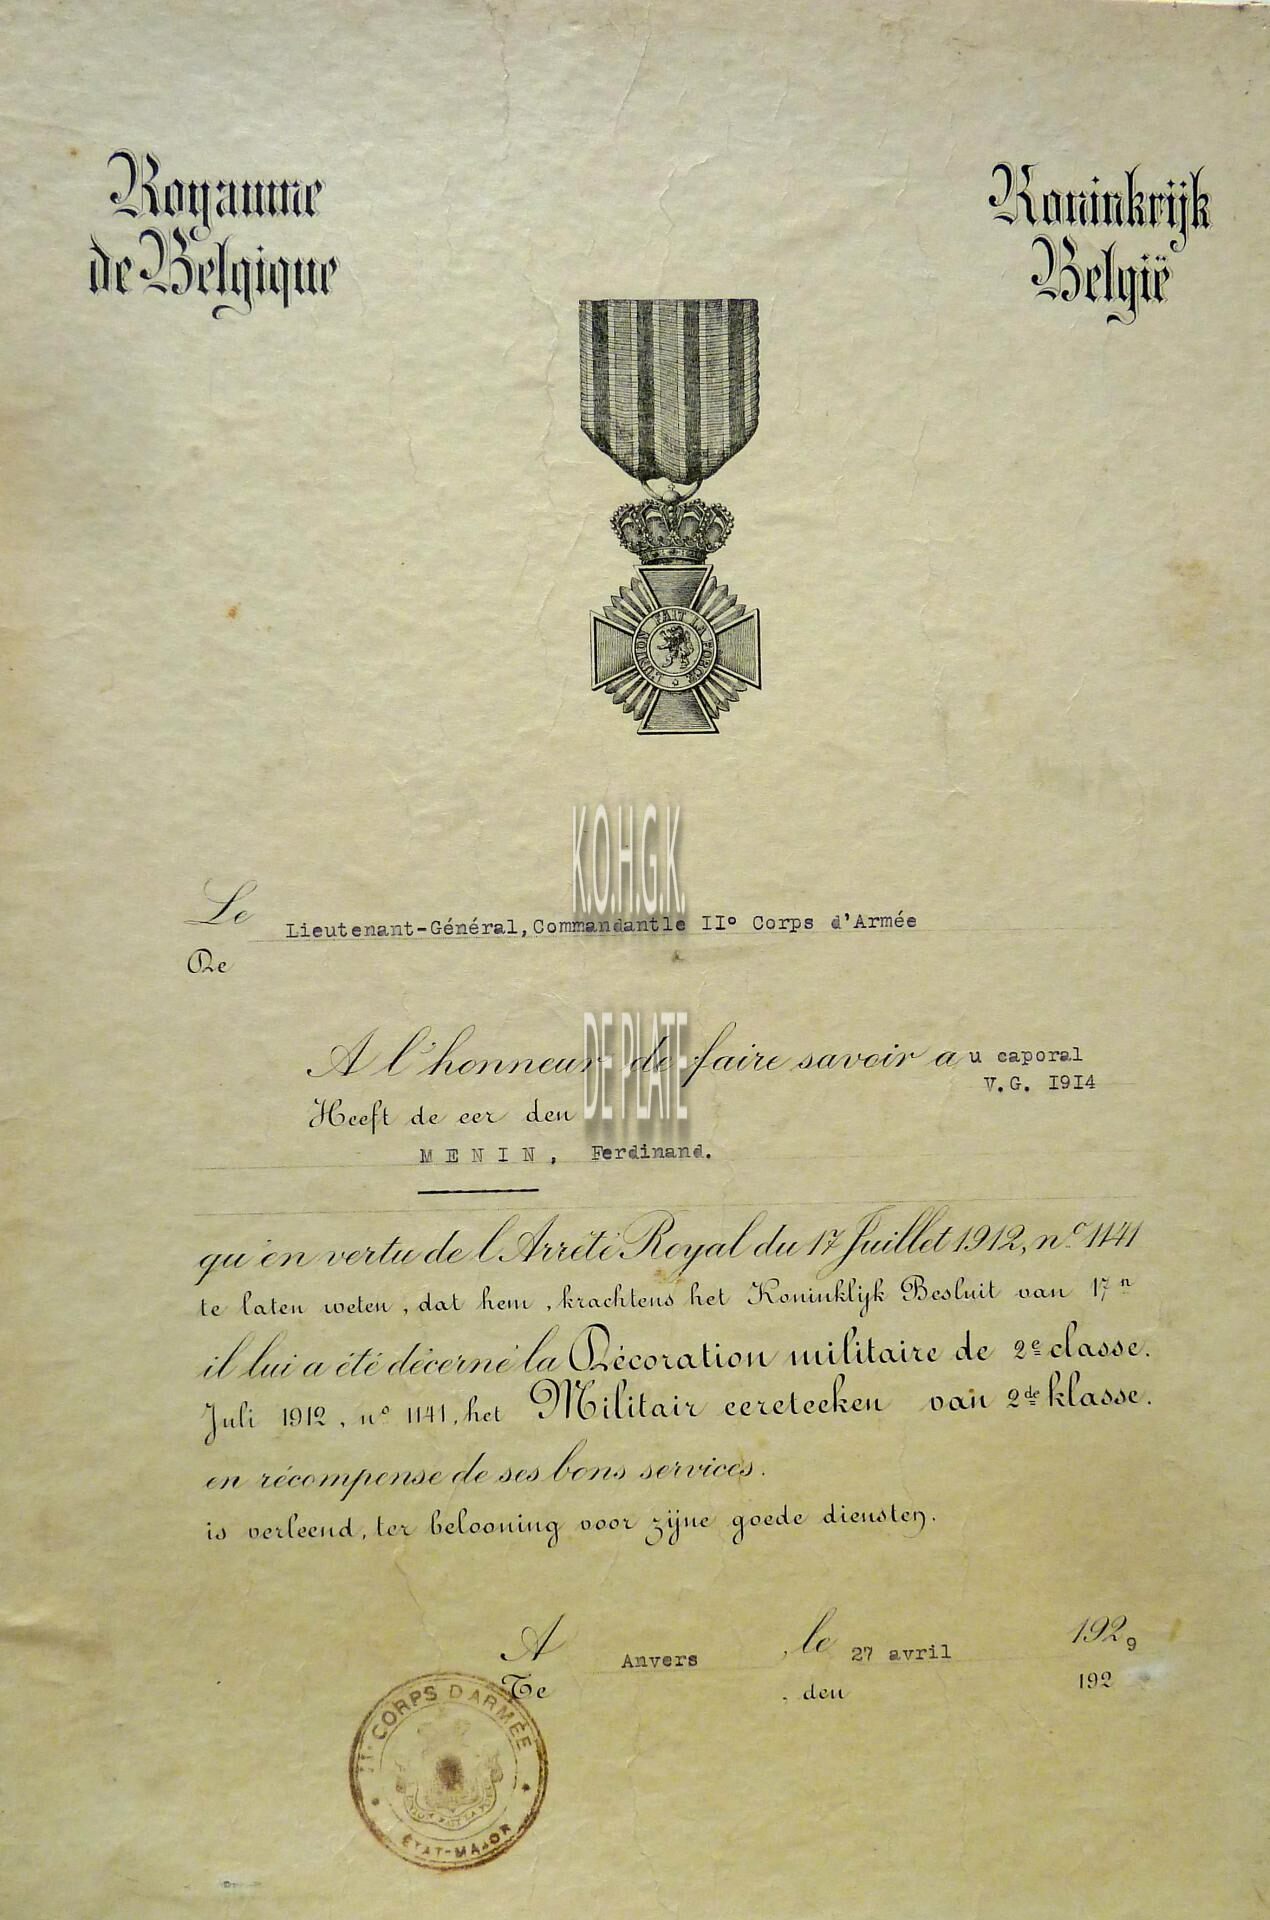 Royaume
de Belgique
Koninkrijk
België
L'UNION FAIT LA FORCE
K.O.H.G.K.
Le Lieutenant-Général, Commandant le II° Corps d'Armée
De
DE PLATE
A l'honneur de faire savoir a u caporal
V.G. 1914
Heeft de eer den
MENIN, Ferdinand.
qu'en vertu de l'Arrêté Royal du 17 Juillet 1912, n° 1141
te laten weten, dat hem, krachtens het Koninklijk Besluit van 17n
il lui a été décerné la Décoration militaire de 2e classe.
Juli 1912, n° 1141, het Militair eereteeken van 2de klasse.
en récompense de ses bons services.
is verleend, ter belooning voor zijne goede diensten.
A Anvers , le 27 avril 1929
Te , den 192
II CORPS D'ARMÉE
ÉTAT-MAJOR